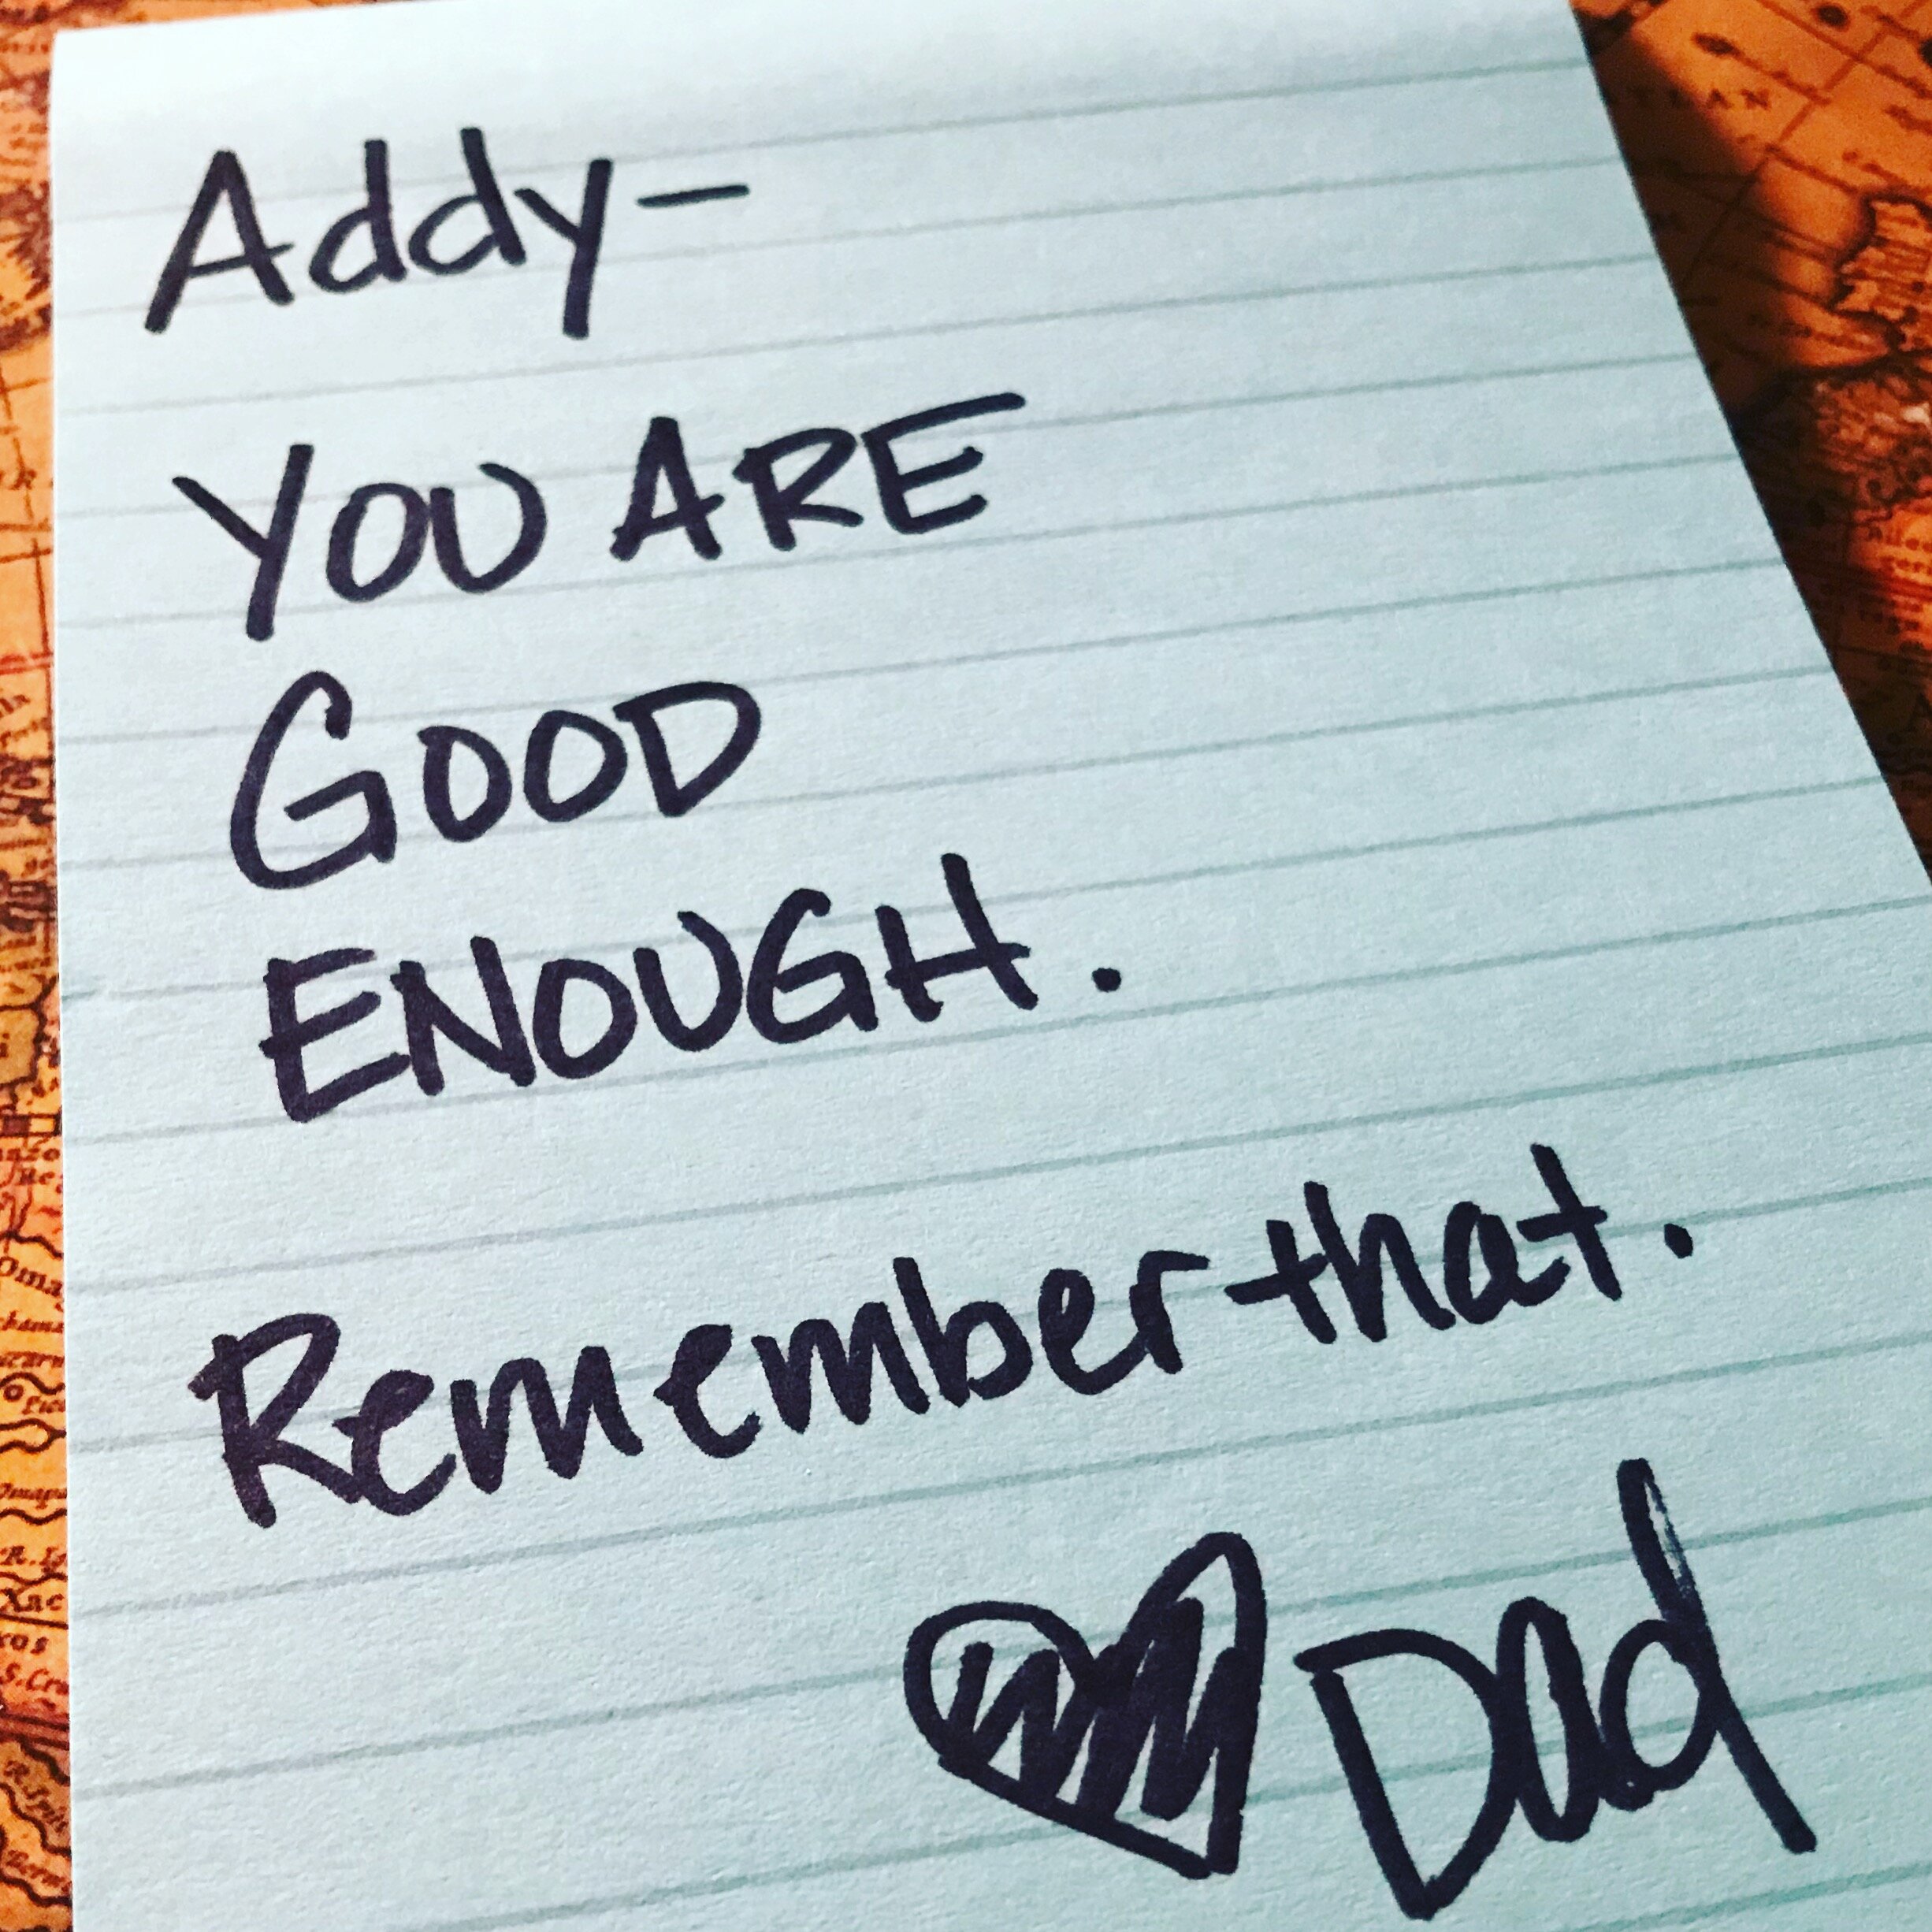 Addy-
YOU ARE
GOOD
ENOUGH.
Remember that.
Dad